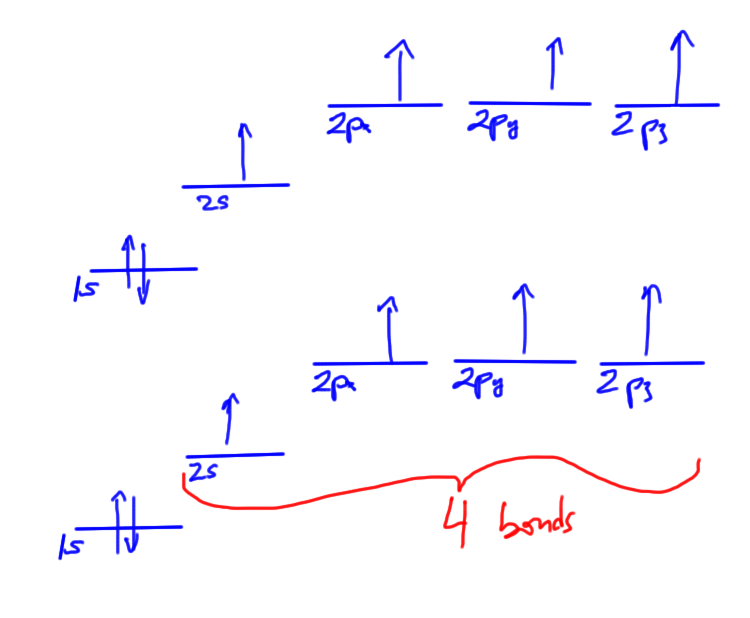 2px 2py 2pz
2s
1s
2px 2py 2pz
2s
4 bonds
1s